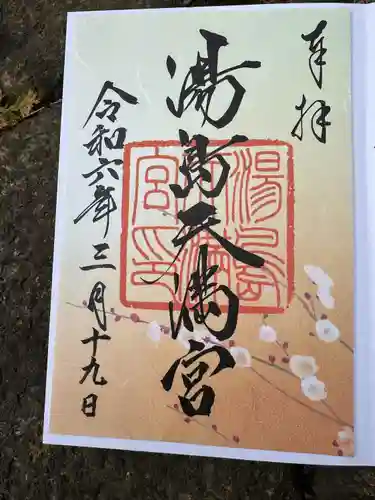 奉拝
湯島天満宮
湯島天満宮印
令和六年三月十九日